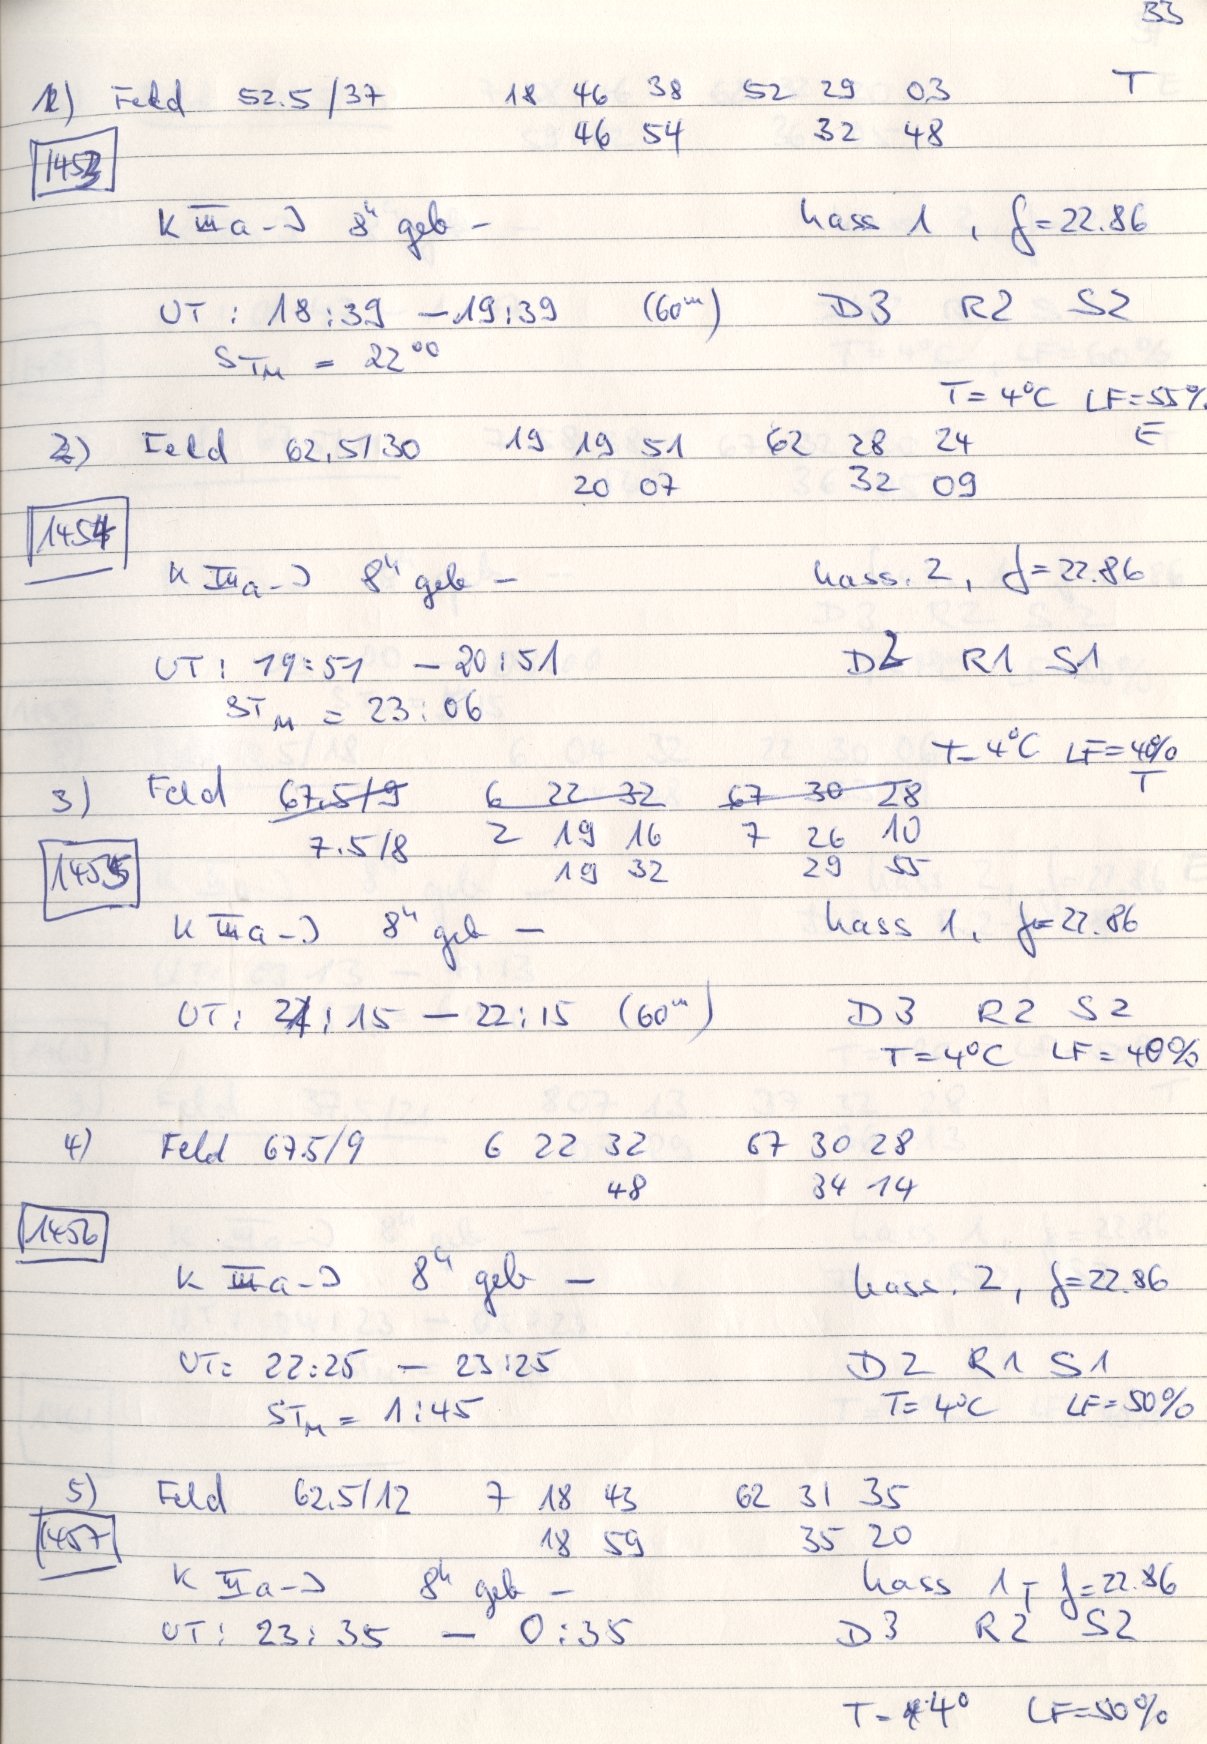 33
1) Feld 52.5/37 18 46 38 52 29 03 T
46 54 32 48
1453
K IIIa-J 8h geb - Kass 1, f=22.86
UT: 18:39 - 19:39 (60m) D3 R2 S2
STM = 22 00
T=4°C LF=55%
2) Feld 62.5/30 19 19 51 62 28 24 E
20 07 32 09
1454
K IIIa-J 8h geb - Kass. 2, f=22.86
UT: 19:51 - 20:51 D2 R1 S1
STM = 23:06
T=4°C LF=40%
3) Feld 67.5/9 6 22 32 67 30 28 T
7.5/8 2 19 16 7 26 10
19 32 29 55
1455
K IIIa-J 8h geb - Kass 1, f=22.86
UT: 21:15 - 22:15 (60m) D3 R2 S2
T=4°C LF=40%
4) Feld 67.5/9 6 22 32 67 30 28
48 34 14
1456
K IIIa-J 8h geb - Kass. 2, f=22.86
UT: 22:25 - 23:25 D2 R1 S1
STM = 1:45 T=4°C LF=50%
5) Feld 62.5/12 7 18 43 62 31 35
18 59 35 20
1457
K IIIa-J 8h geb - Kass 1, f=22.86
UT: 23:35 - 0:35 D3 R2 S2
T=4° LF=50%